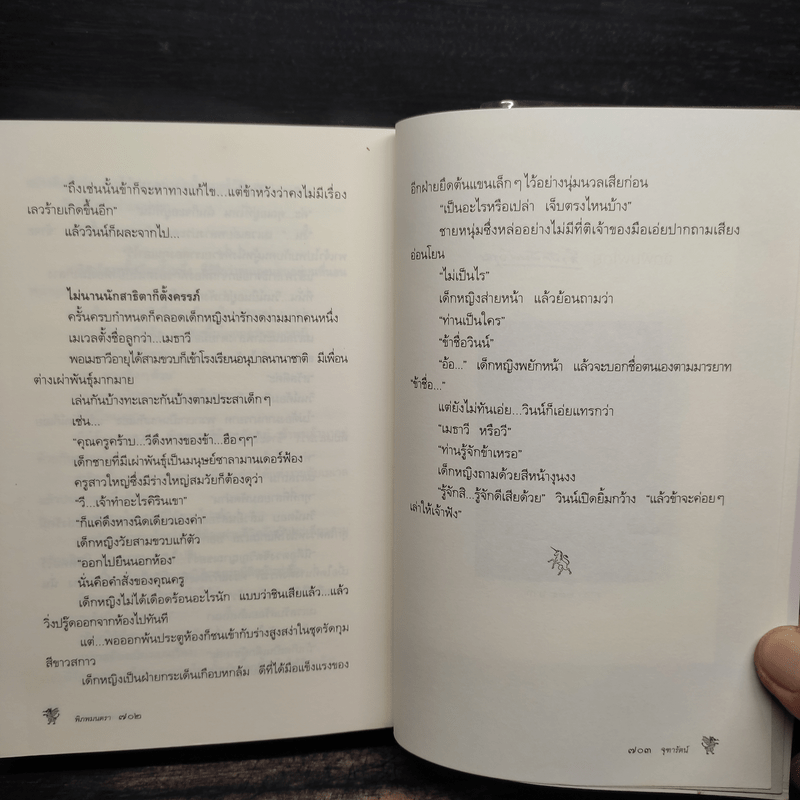 “ถึงเช่นนั้นข้าก็จะหาทางแก้ไข...แต่ข้าหวังว่าคงไม่มีเรื่อง
เลวร้ายเกิดขึ้นอีก”
แล้ววินน์ก็ผละจากไป...
ไม่นานนักสาธิตาก็ตั้งครรภ์
ครั้นครบกำหนดก็คลอดเด็กหญิงน่ารักงดงามมากคนหนึ่ง
เมเวลตั้งชื่อลูกว่า...เมธาวี
พอเมธาวีอายุได้สามขวบก็เข้าโรงเรียนอนุบาลนานาชาติ มีเพื่อน
ต่างเผ่าพันธุ์มากมาย
เล่นกันบ้างทะเลาะกันบ้างตามประสาเด็กๆ
เช่น...
“คุณครูคร้าบ...วีดึงหางของข้า...ฮือๆๆ”
เด็กชายที่มีเผ่าพันธุ์เป็นมนุษย์ซาลามานเดอร์ฟ้อง
ครูสาวใหญ่ซึ่งมีร่างใหญ่สมวัยก็ต้องดุว่า
“วี...เจ้าทำอะไรคิรินเขา”
“ก็แค่ดึงหางนิดเดียวเองค่า”
เด็กหญิงวัยสามขวบแก้ตัว
“ออกไปยืนนอกห้อง”
นั่นคือคำสั่งของคุณครู
เด็กหญิงไม่ได้เดือดร้อนอะไรนัก แบบว่าชินเสียแล้ว...แล้ว
วิ่งปรู๊ดออกจากห้องไปทันที
แต่...พอออกพ้นประตูห้องก็ชนเข้ากับร่างสูงสง่าในชุดรัดกุม
สีขาวสกาว
เด็กหญิงเป็นฝ่ายกระเด็นเกือบหกล้ม ดีที่ได้มือแข็งแรงของ
พิภพมนตรา ๗๐๒
อีกฝ่ายยึดต้นแขนเล็กๆ ไว้อย่างนุ่มนวลเสียก่อน
“เป็นอะไรหรือเปล่า เจ็บตรงไหนบ้าง”
ชายหนุ่มซึ่งหล่ออย่างไม่มีที่ติเจ้าของมือเอ่ยปากถามเสียง
อ่อนโยน
“ไม่เป็นไร”
เด็กหญิงส่ายหน้า แล้วย้อนถามว่า
“ท่านเป็นใคร”
“ข้าชื่อวินน์”
“อ้อ...” เด็กหญิงพยักหน้า แล้วจะบอกชื่อตนเองตามมารยาท
“ข้าชื่อ...”
แต่ยังไม่ทันเอ่ย...วินน์ก็เอ่ยแทรกว่า
“เมธาวี หรือวี”
“ท่านรู้จักข้าเหรอ”
เด็กหญิงถามด้วยสีหน้างุนงง
“รู้จักสิ...รู้จักดีเสียด้วย” วินน์เปิดยิ้มกว้าง “แล้วข้าจะค่อยๆ
เล่าให้เจ้าฟัง”
๗๐๓ จุฑารัตน์